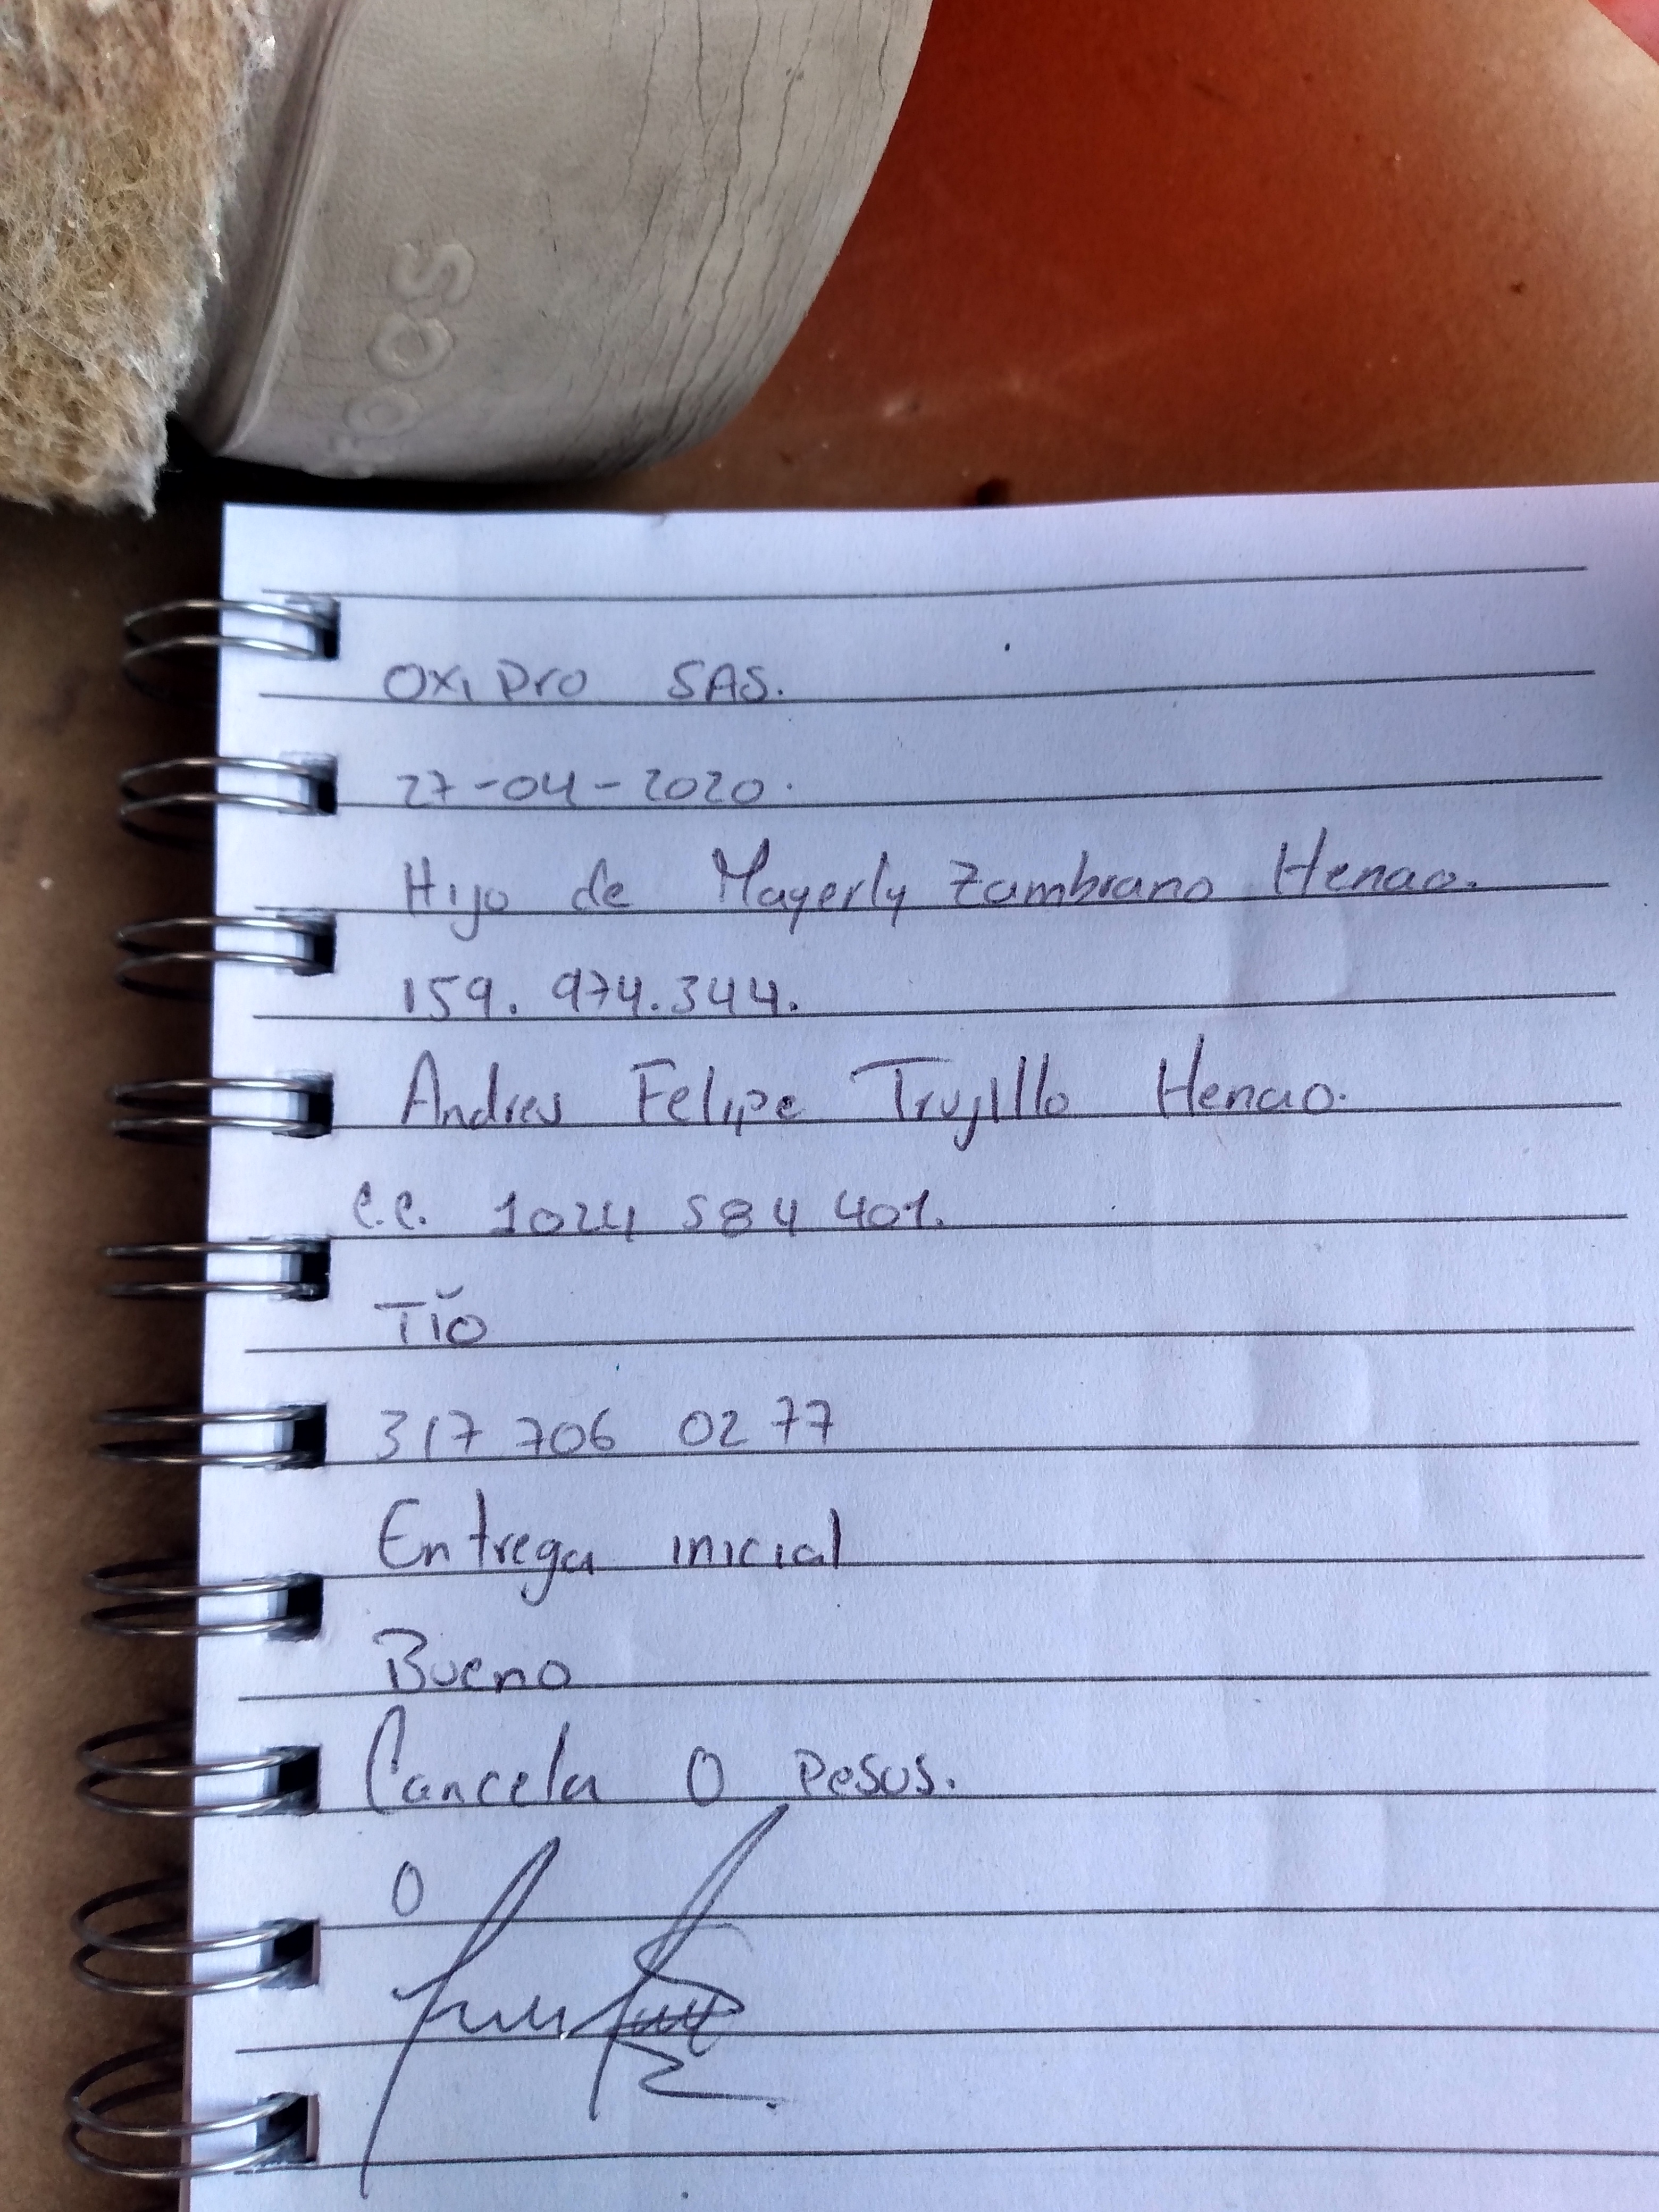 rocs
Oxi Pro SAS.
27-04-2020.
Hijo de Mayerly Zambrano Henao.
159.974.344.
Andres Felipe Trujillo Henao.
C.C. 1024 584 401.
Tío
317 706 0277
Entrega inicial
Bueno
Cancela 0 pesos.
0